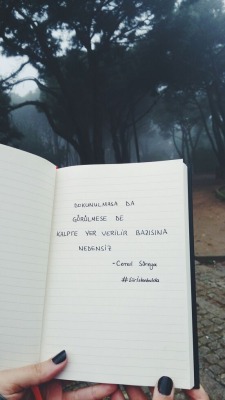 DOKUNULMASA DA
GÖRÜLMESE DE
KALPTE YER VERİLİR BAZISINA
NEDENSİZ
- Cemal Süreya
#siiristanbulda